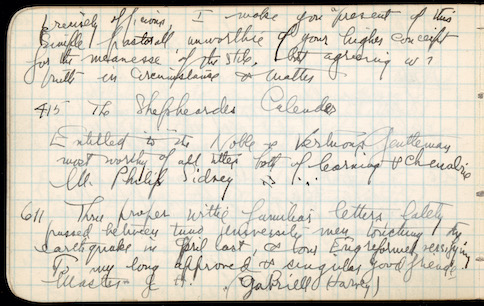 precisely officious, I make you present of this
simple pastorall, unworthie of your higher conceipt
for the meanesse of the stile, but agreeing wt
truth in circumstance & matter
415 The Shepheardes Calender
Entitled to the Noble & Vertuous Gentleman
most worthy of all titles both of learning & Chevalrie
M. Philip Sidney
611 Three proper wittie familiar letters lately
passed between two universitie men, touching the
earthquake in April last, & our Eng reformed versifying
To my long approved & singular good friende
Master G. H. (Gabriell Harvey)